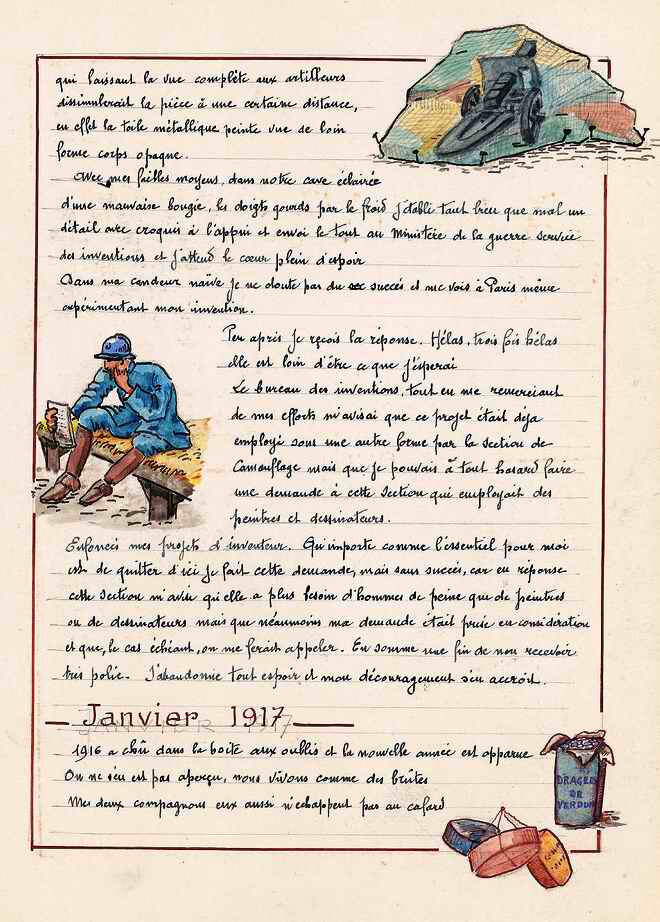 qui laissant la vue complète aux artilleurs
dissimulerait la pièce à une certaine distance,
en effet la toile métallique peinte vue de loin
forme corps opaque.
Avec mes faibles moyens, dans notre cave éclairée
d'une mauvaise bougie, les doigts gourds par le froid j'établi tant bien que mal un
détail avec croquis à l'appui et envoi le tout au Ministère de la guerre service
des inventions et j'attend le cœur plein d'espoir
Dans ma candeur naïve je ne doute pas du succés et me vois à Paris même
expérimentant mon invention.
Peu après je reçois la réponse. Hélas, trois fois hélas
elle est loin d'être ce que j'espérai
Le bureau des inventions, tout en me remerciant
de mes efforts m'avisai que ce projet était déja
employé sous une autre forme par la section de
Camouflage mais que je pouvais à tout hasard faire
une demande à cette section qui employait des
peintres et dessinateurs.
Enfoncés mes projets d'inventeur. Qu'importe comme l'essentiel pour moi
est de quitter d'ici je fait cette demande, mais sans succès, car en réponse
cette section m'avise qu'elle a plus besoin d'hommes de peine que de peintres
ou de dessinateurs mais que néaumoins ma demande était prise en considération
et que, le cas échéant, on me ferait appeler. En somme une fin de non recevoir
très polie. J'abandonne tout espoir et mon découragement s'en accroit.
Janvier 1917
1916 a chû dans la boite aux oublis et la nouvelle année est apparue
On ne s'en est pas aperçu, nous vivons comme des brûtes
Mes deux compagnons eux aussi n'échappent pas au cafard
DRAGEES
DE
VERDUN